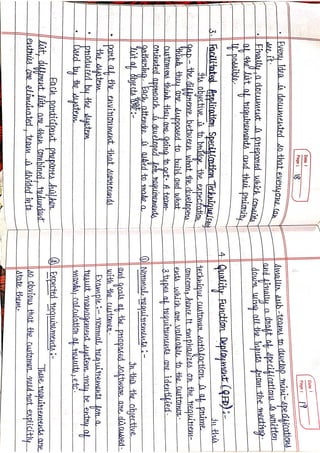 Date :
Page : 18
• Every idea is documented so that everyone can
see it
• Finally, a document is prepared which consists
of the list of requirements and their priority
if possible.
3. Facilitated Application Specification Technique:-
Its objective is to bridge the expectation
gap - the difference between what the developers
think they are supposed to build and what
customers think they are going to get. A team-
oriented approach is developed for requirements
gathering. Each attendee is asked to make a
list of objects that :-
• part of the environment that surrounds
the system
• produced by the system
• Used by the system.
Each participant prepares his/her
list, different lists are then combined, redundant
entries are eliminated, team is divided into
Date :
Page : 19
smaller sub-teams to develop mini-specifications
and finally a draft of specifications is written
down using all the inputs from the meeting.
4. Quality Function Deployment (QFD) :-
In this
technique customer satisfaction is of prime
concern, hence it emphasizes on the requirem-
ents which are valuable to the customer.
3 types of requirements are identified -
① Normal requirements :-
In this the objective
and goals of the proposed software are discussed
with the customer.
Example :- normal requirements for a
result management system may be entry of
marks, calculation of results, etc.
② Expected requirements :-
These requirements are
so obvious that the customer need not explicitly
state them.